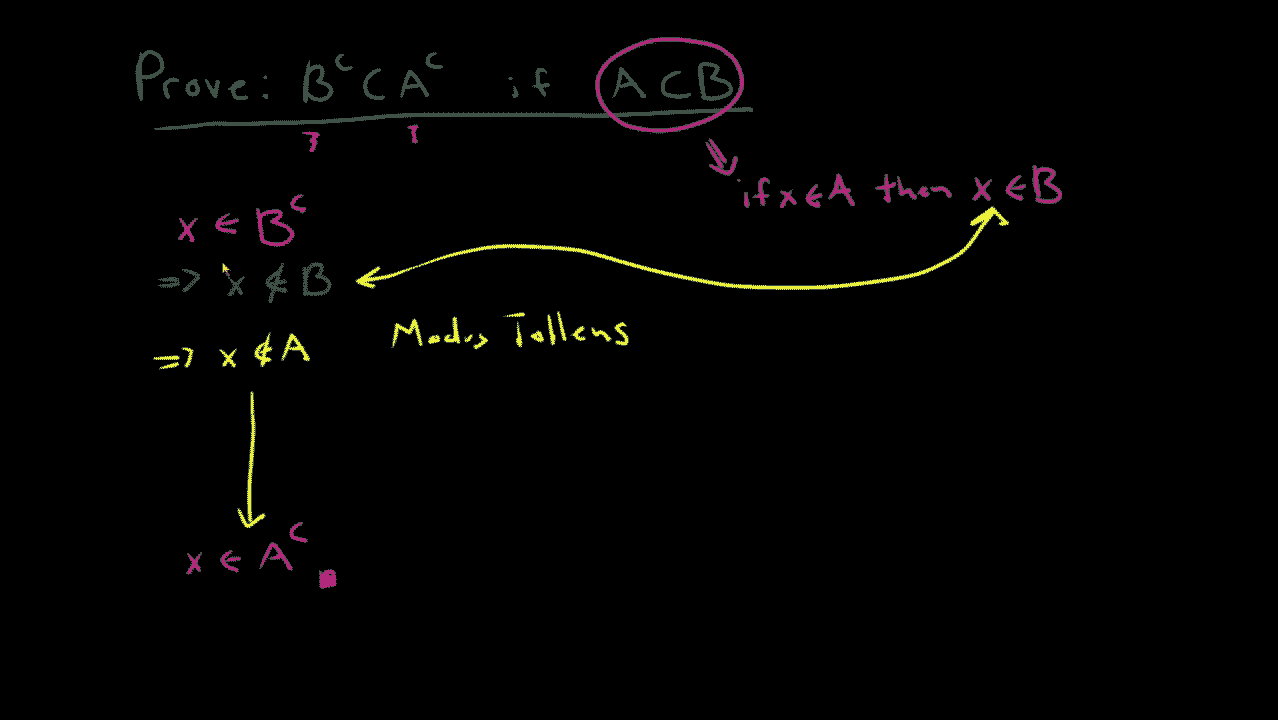 Prove: Bᶜ ⊂ Aᶜ if A ⊂ B
if x ∈ A then x ∈ B
x ∈ Bᶜ
⇒ x ∉ B
⇒ x ∉ A Modus Tollens
x ∈ Aᶜ ■